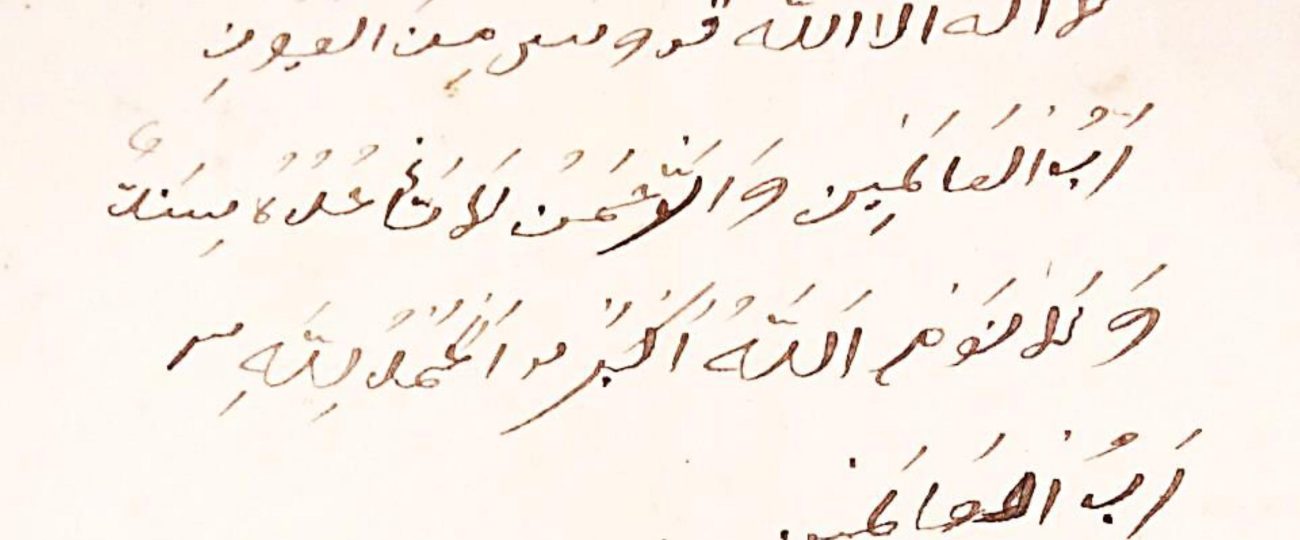 لا اله الا الله قدوس مِن العيونِ
رَبُّ الْعَالَمِين وَالرَّحْمَن لَا تَأخُذُهُ سِنَةٌ
وَلَا نَوْم اَللَّهُ اَكْبَرُ وَ اَلْحَمْدُ لِلَّهِ
رَبُّ الْعَالَمين